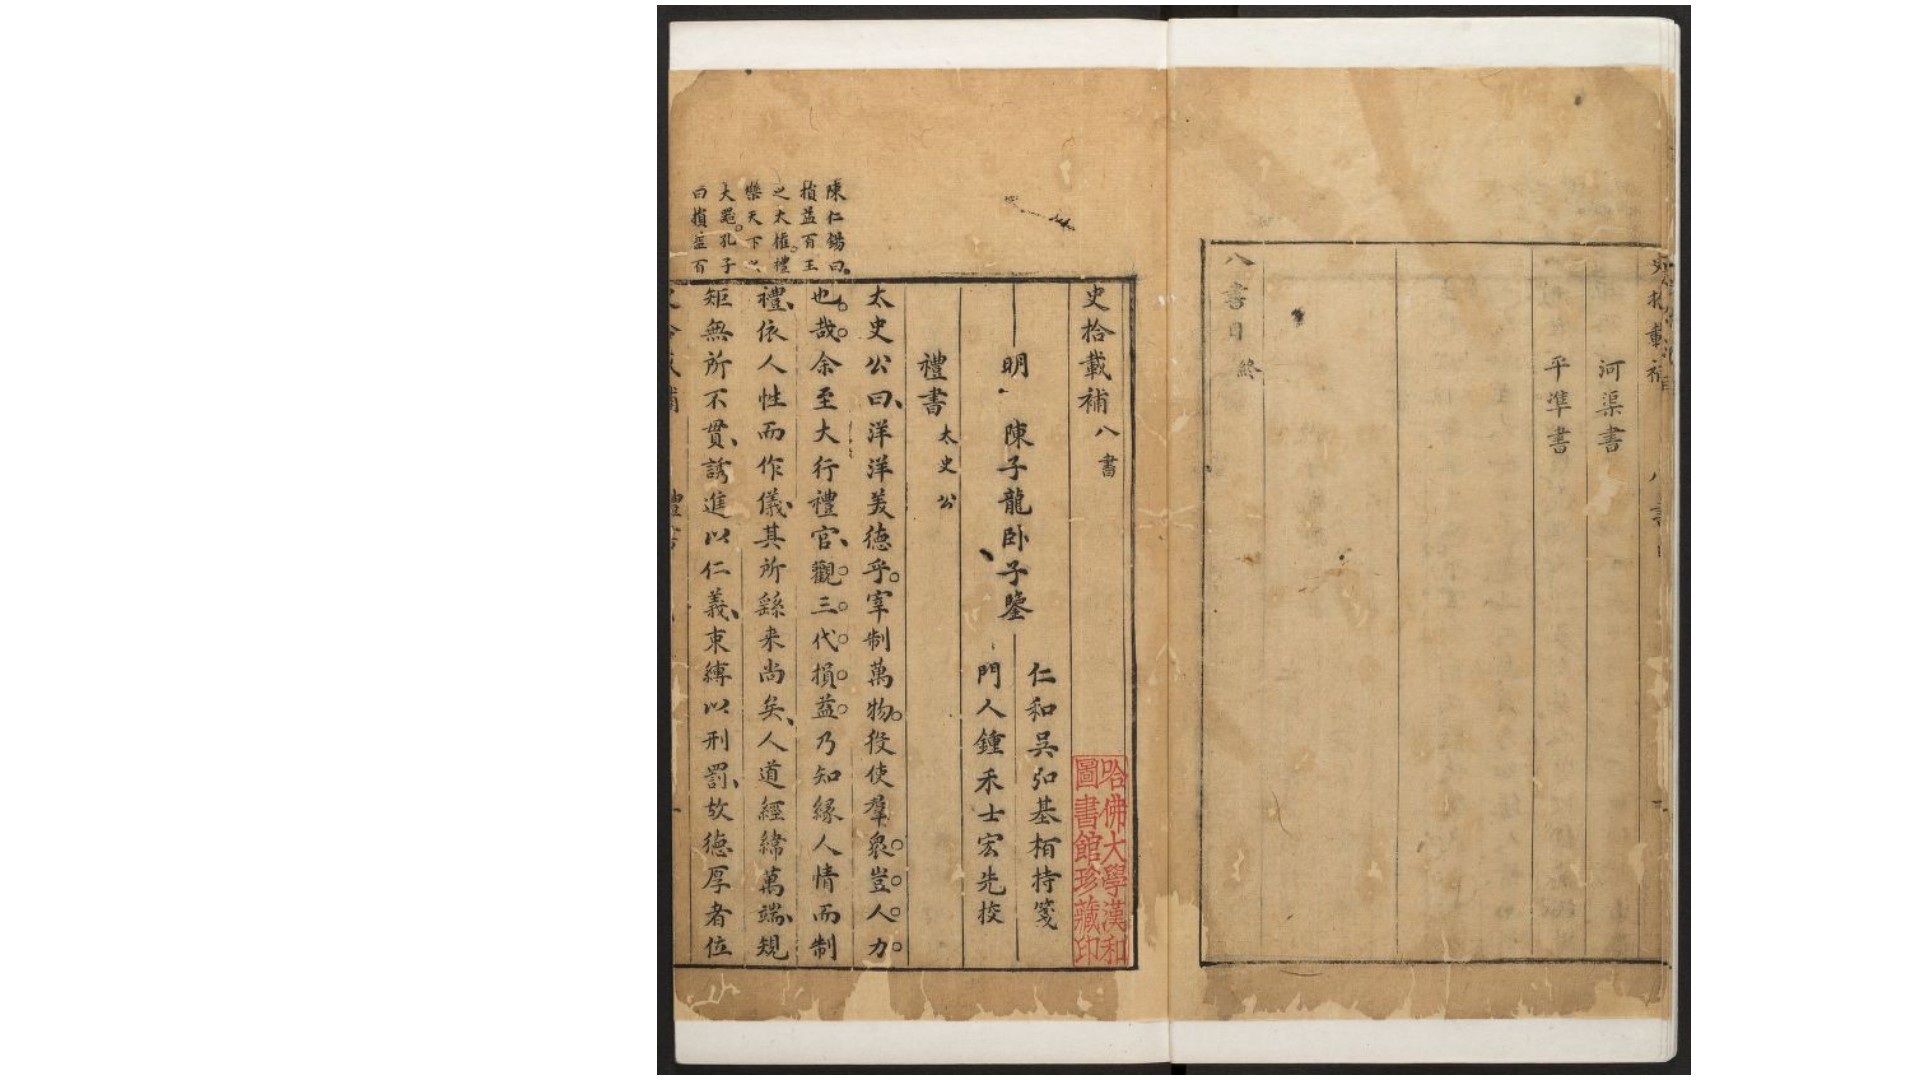 河渠書
平準書
八書目終
史拾載補 八書
明 陳子龍卧子鑒
仁和吳弘基栢持箋
門人鍾禾士宏先挍
禮書 太史公
太史公曰、洋洋美德乎。宰制萬物。役使羣衆。豈人力
也哉。余至大行禮官、觀三代損益乃知緣人情而制
禮、依人性而作儀、其所繇来尚矣、人道經緯萬端、規
矩無所不貫、誘進以仁義、束縛以刑罰、故德厚者位
陳仁錫曰。
損益百王
之大權。禮
樂天下之
大器。孔子
曰損益百
哈佛大學漢和
圖書館珍藏印